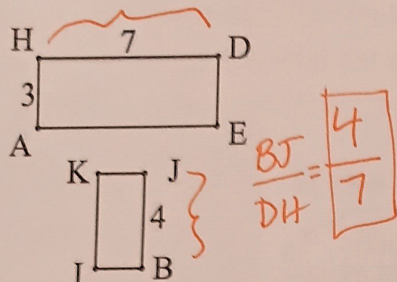 H 7 D
3
A E
K J
4
I B
BJ/DH = 4/7